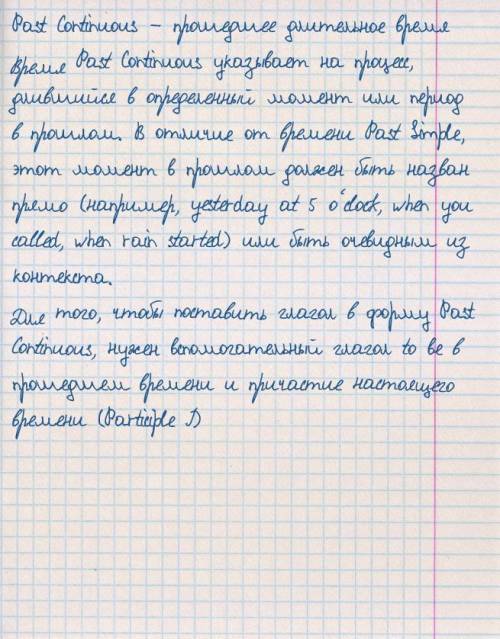 Past Continuous – прошедшее длительное время
Время Past Continuous указывает на процесс,
длившийся в определенный момент или период
в прошлом. В отличие от времени Past Simple,
этот момент в прошлом должен быть назван
прямо (например, yesterday at 5 o'clock, when you
called, when rain started) или быть очевидным из
контекста.
Для того, чтобы поставить глагол в форму Past
Continuous, нужен вспомогательный глагол to be в
прошедшем времени и причастие настоящего
времени (Participle I)